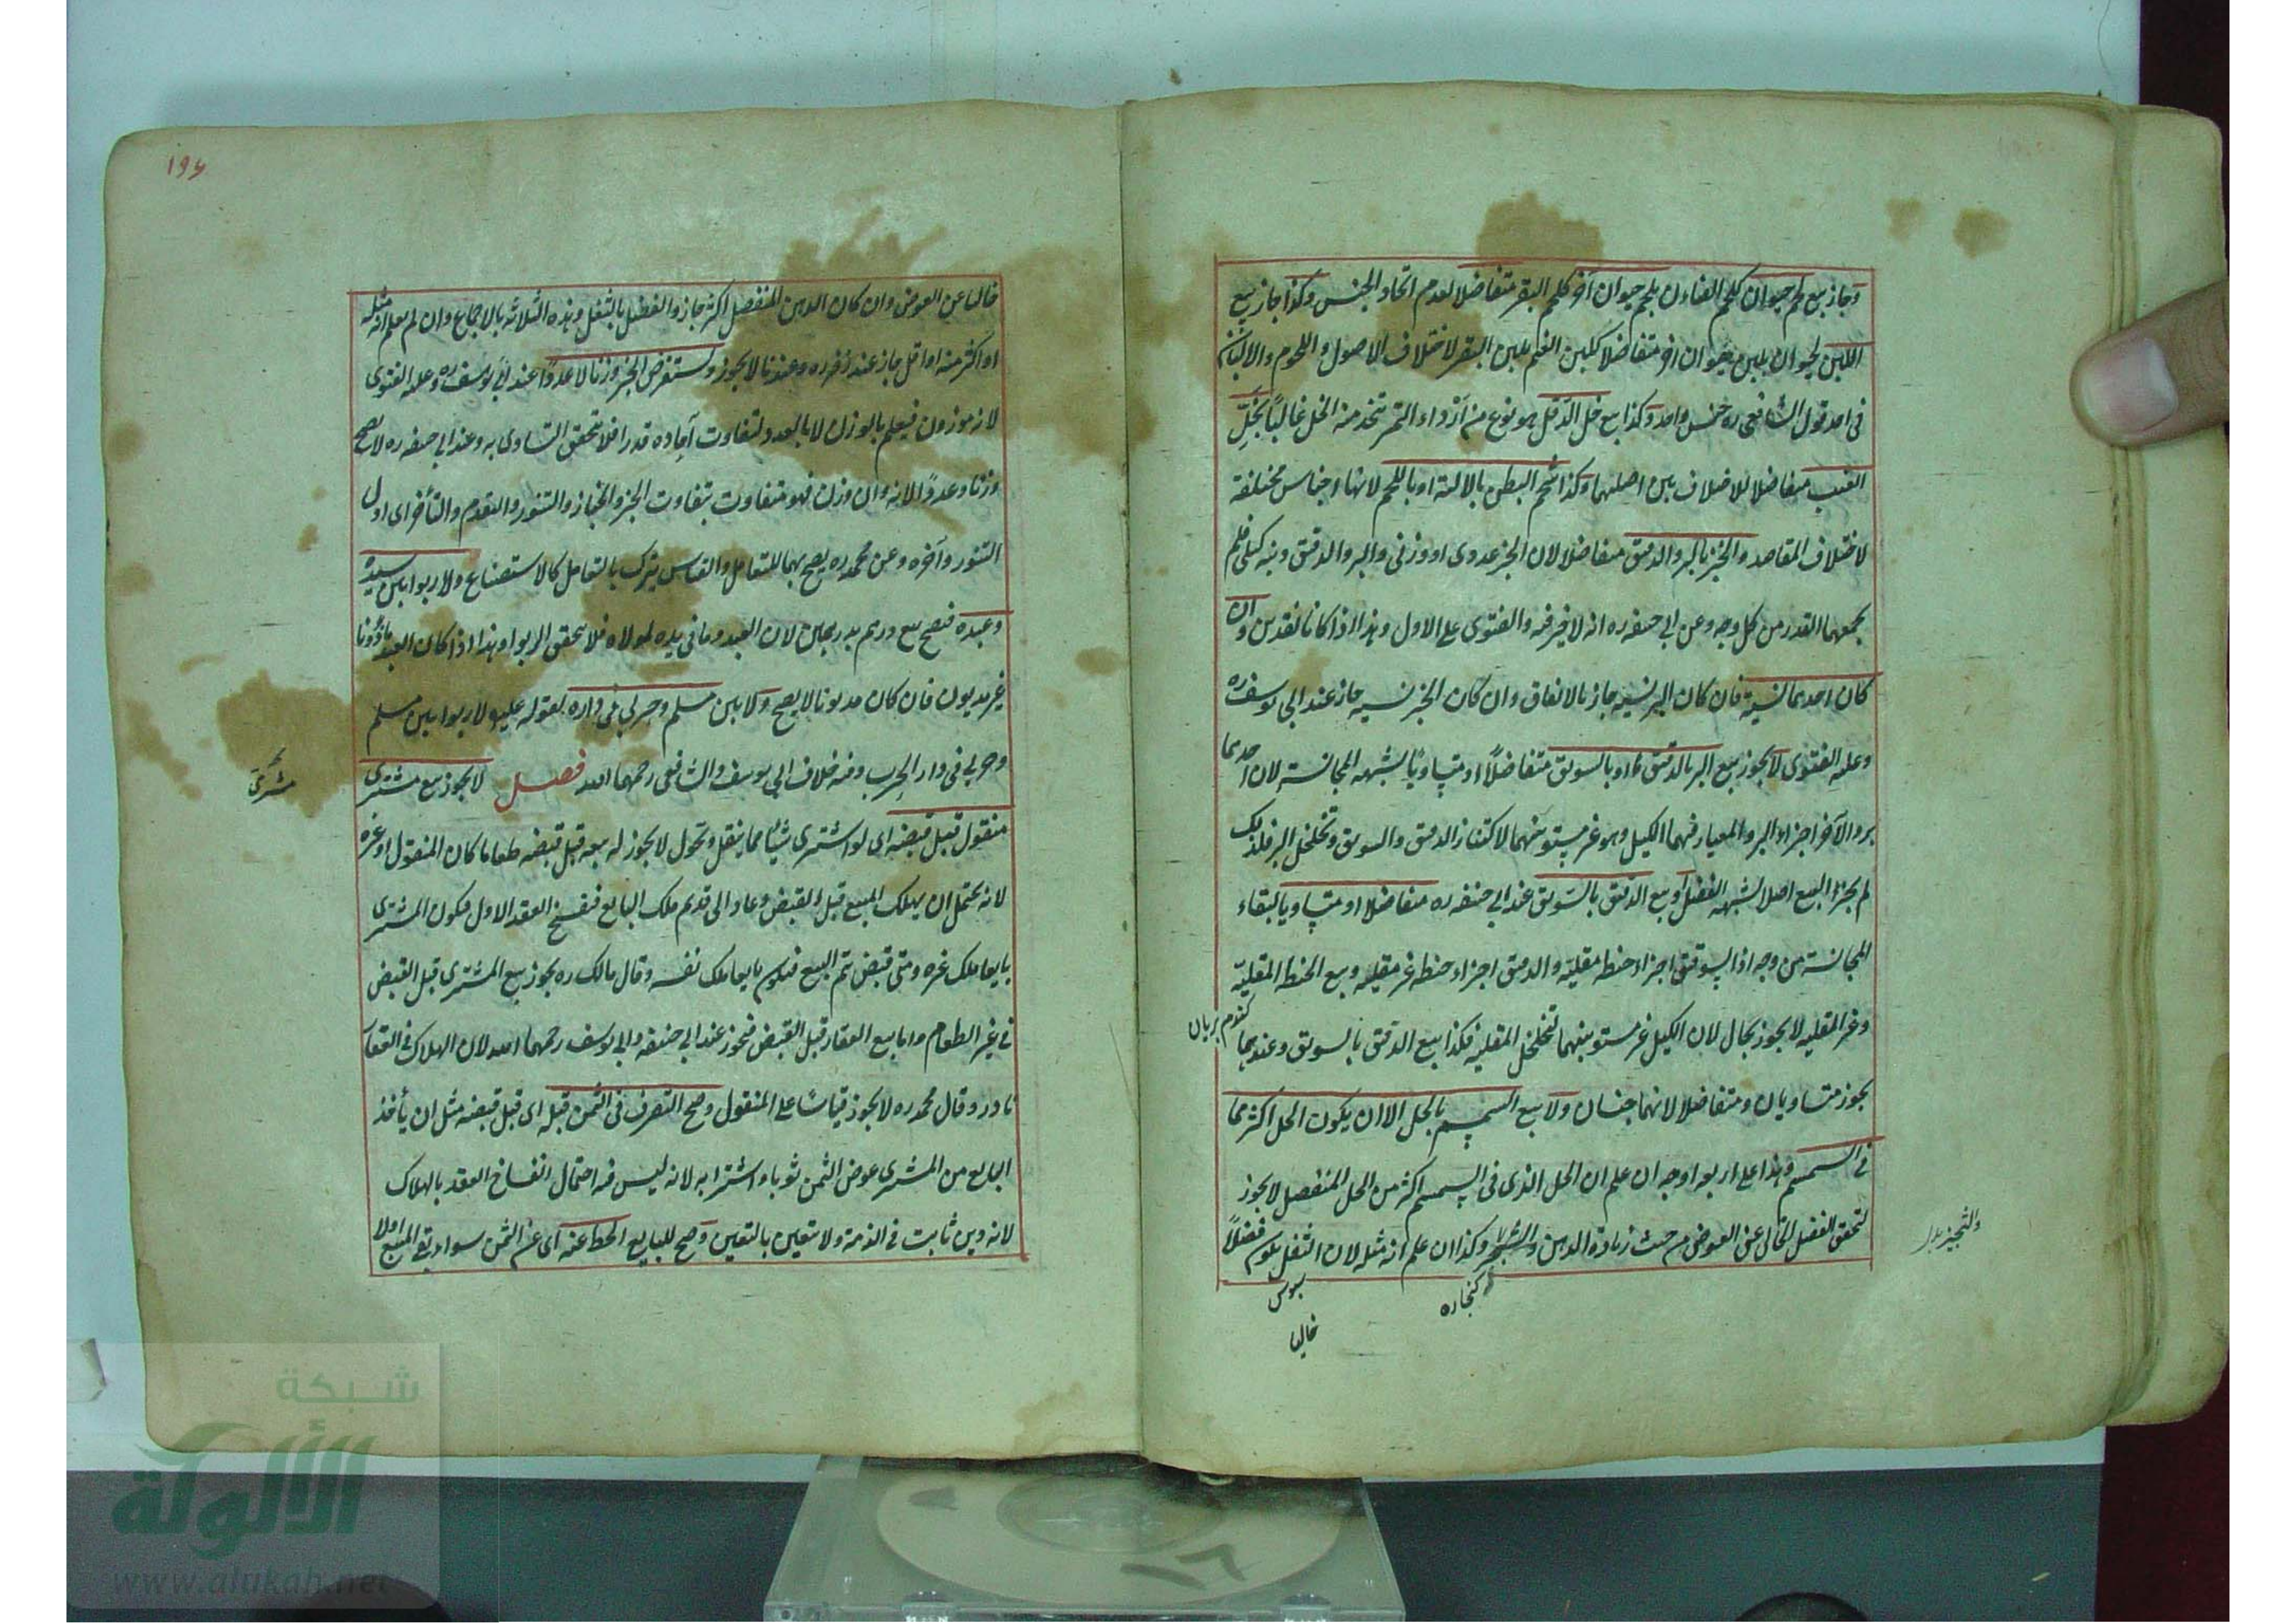 وجاز بيع لحم حيوان كلحم الضاءن بلحم حيوان آخر كلحم البقر متفاضلا لعدم اتحاد الجنس وكذا جاز بيع
اللبن لحيوان بلبن حيوان اخر متفاضلا كلبن الغنم بلبن البقر لاختلاف الاصول واللحوم والالبان
فى احد قول الشافعى ره جنس واحد وكذا بيع خل الدقل هو نوع من ازداء التمر تتخذ منه الخل غالبًا بخلِّ
العنب متفاضلا للاختلاف بين اصليهما وكذا شحم البطن بالالية او باللحم لانها اجناس مختلفة
لاختلاف المقاصد والخبز بالبر والدقيق متفاضلا لان الخبز عددى او وزنى والبر والدقيق كيلى فلم
يجمعهما القدر من كل وجه وعن ابى حنيفه ره انه لا خير فيه والفتوى على الاول وهذا اذا كانا نقدين وان
كان احدهما نسية فان كان البر نسيه جاز بالاتفاق وان كان الخبز نسيه جاز عند ابى يوسف ره
وعليه الفتوى لا يجوز بيع البر بالدقيق او بالسويق متفاضلًا او متساويًا لشبهه المجانسة لان احدهما
بر والآخر اجزاء البر والمعيار فيهما الكيل وهو غير مستو بينهما لاكتناز الدقيق والسويق وتخلخل البر فلذلك
لم يجز البيع اصلا لشبهه الفضل او بيع الدقيق بالسويق عند ابى حنيفه ره متفاضلا او متساويا لبقاء
المجانسة من وجه اذ السويق اجزاء حنطه مقليّه والدقيق اجزاء حنطه غير مقليه وبيع الحنطه المقليّه
وغير المقليه لا يجوز بحال لان الكيل غير مستو بينهما لتخلخل المقليه فكذا بيع الدقيق بالسويق وعندهما
كندم بريان
يجوز متساويان ومتفاضلا لانهما جنسان ولا بيع السمسم بالحل الا ان يكون الحل اكثر مما
فى السمسم وهذا على اربعه اوجه ان علم ان الحل الذى فى السمسم اكثر من الحل المنفصل لا يجوز
لتحقق الفضل الخالى عن العوض من حيث زيادة الدهن وكذا ان علم انه مثله لان الثفل يكون فضلًا
كنجاره
سبوس
خاليا
١٩٦
خاليا عن العوض وان كان الدهن المنفصل اكثر جاز والفضل بالثفل وهذه الثلاثه بالاجماع وان لم يعلم انه مثله
او اكثر منه او اقل جاز عند زفر ره وعندنا لا يجوز ويستقرض الخبز وزنا لا عددًا عند ابى يوسف ره وعليه الفتوى
لانه موزون فيعلم بالوزن لا بالعدد لتفاوت آحاده قدرا فلا تتحقق التساوى به وعند ابى حنيفه ره لا يصح
وزنا وعددًا لانه وان وزن فهو متفاوت بتفاوت الخبز والخباز والتنور والتقدم والتأخر اى اول
التنور وآخره وعن محمد ره يصح بهما للتعامل والقياس يترك بالتعامل كالاستصناع ولا ربوا بين سيد
وعبده فيصح بيع درهم بدرهمين لان العبد وما فى يده لمولاه فلا تتحقق الربوا وهذا اذا كان العبد ماذونا
غير مديون فان كان مديونا لا يصح ولا بين مسلم وحربى فى داره لقوله عليه لا ربوا بين مسلم
وحربى فى دار الحرب وفيه خلاف ابى يوسف والشافعى رحمهما الله فصل لا يجوز بيع مشترى
مشترَى
منقول قبل قبضه اى لو اشترى شيئًا مما ينقل وتحول لا يجوز له بيعه قبل قبضه طعاما كان المنقول او غيره
لانه يحتمل ان يهلك المبيع قبل القبض وعاد الى قديم ملك البايع فينفسخ العقد الاول فيكون المشترى
بايعا ملك غيره ومتى قبض تم البيع فيكون بايعا ملك نفسه وقال مالك ره يجوز بيع المشترى قبل القبض
فى غير الطعام واما بيع العقار قبل القبض فيجوز عند ابى حنيفه وابى يوسف رحمهما الله لان الهلاك فى العقار
نادر وقال محمد ره لا يجوز قياسًا على المنقول وصح التصرف فى الثمن قبله اى قبل قبضه مثل ان يأخذ
البايع من المشترى عوض الثمن ثوبا واشترا به لانه ليس فيه احتمال انفساخ العقد بالهلاك
لانه دين ثابت فى الذمة ولا يتعين بالتعيين وصح للبايع الحط عنه اى عن الثمن سواء بقى المبيع اولا
شبكة
الألوكة
www.alukah.net